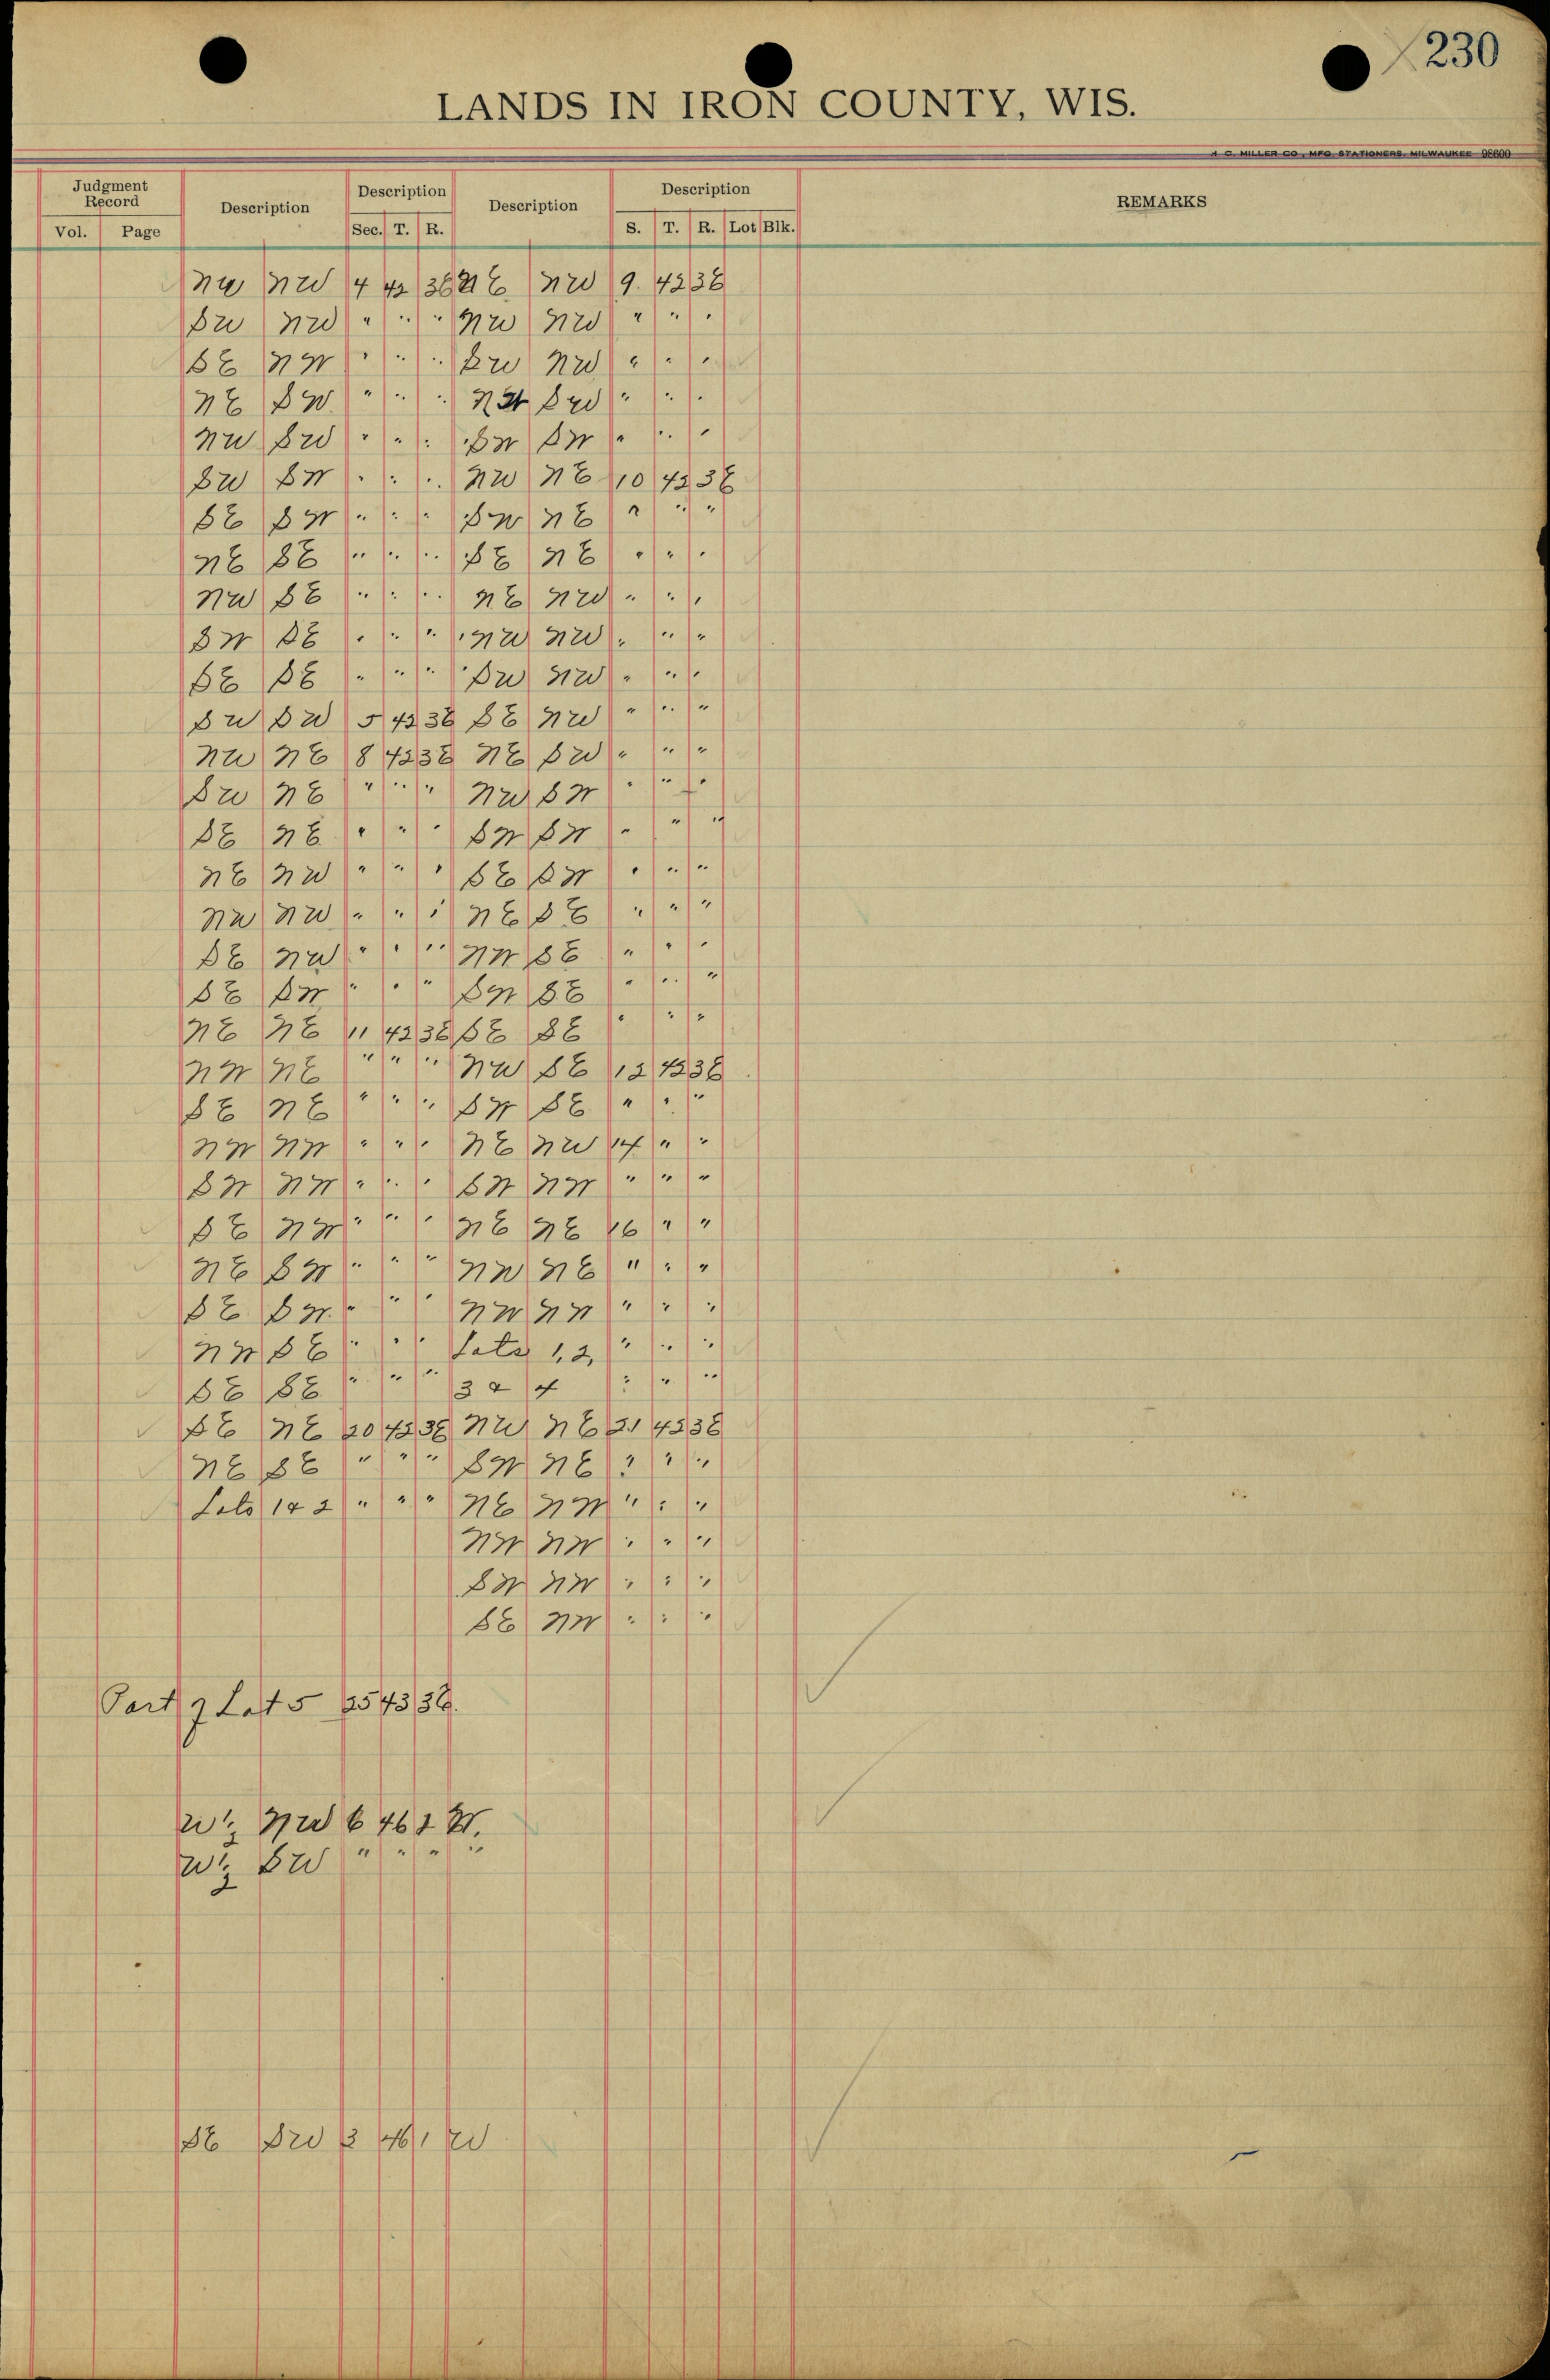 230
LANDS IN IRON COUNTY, WIS.
H. C. MILLER CO., MFG. STATIONERS, MILWAUKEE 98600
Judgment Record Description Description Description Description REMARKS
Vol. Page Sec. T. R. S. T. R. Lot Blk.
NW NW 4 42 3E NE NW 9 42 3E
SW NW " " " NW NW " " "
SE NW " " " SW NW " " "
NE SW " " " NW SW " " "
NW SW " " " SW SW " " "
SW SW " " " NW NE 10 42 3E
SE SW " " " SW NE " " "
NE SE " " " SE NE " " "
NW SE " " " NE NW " " "
SW SE " " " NW NW " " "
SE SE " " " SW NW " " "
SW SW 5 42 3E SE NW " " "
NW NE 8 42 3E NE SW " " "
SW NE " " " NW SW " " "
SE NE " " " SW SW " " "
NE NW " " " SE SW " " "
NW NW " " " NE SE " " "
SE NW " " " NW SE " " "
SE SW " " " SW SE " " "
NE NE 11 42 3E SE SE " " "
NW NE " " " NW SE 12 42 3E
SE NE " " " SW SE " " "
NW NW " " " NE NW 14 " "
SW NW " " " SW NW " " "
SE NW " " " NE NE 16 " "
NE SW " " " NW NE " " "
SE SW " " " NW NW " " "
NW SE " " " Lots 1, 2, " " "
SE SE " " " 3 & 4 " " "
SE NE 20 42 3E NW NE 21 42 3E
NE SE " " " SW NE " " "
Lots 1 & 2 " " " NE NW " " "
NW NW " " "
SW NW " " "
SE NW " " "
Part of Lot 5 25 43 3E.
W½ NW 6 46 2 W.
W½ SW " " " "
SE SW 3 46 1 W